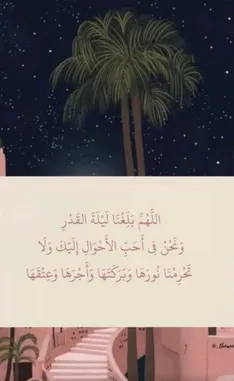 اللَّهُمَّ بَلِّغْنَا لَيْلَةَ القَدْرِ
وَنَحْنُ فِى أَحَبِّ الأَحْوَالِ إِلَيْكَ وَلَا
تَحْرِمْنَا نُورَهَا وَبَرَكَتَهَا وَأَجْرَهَا وَعِتْقَهَا